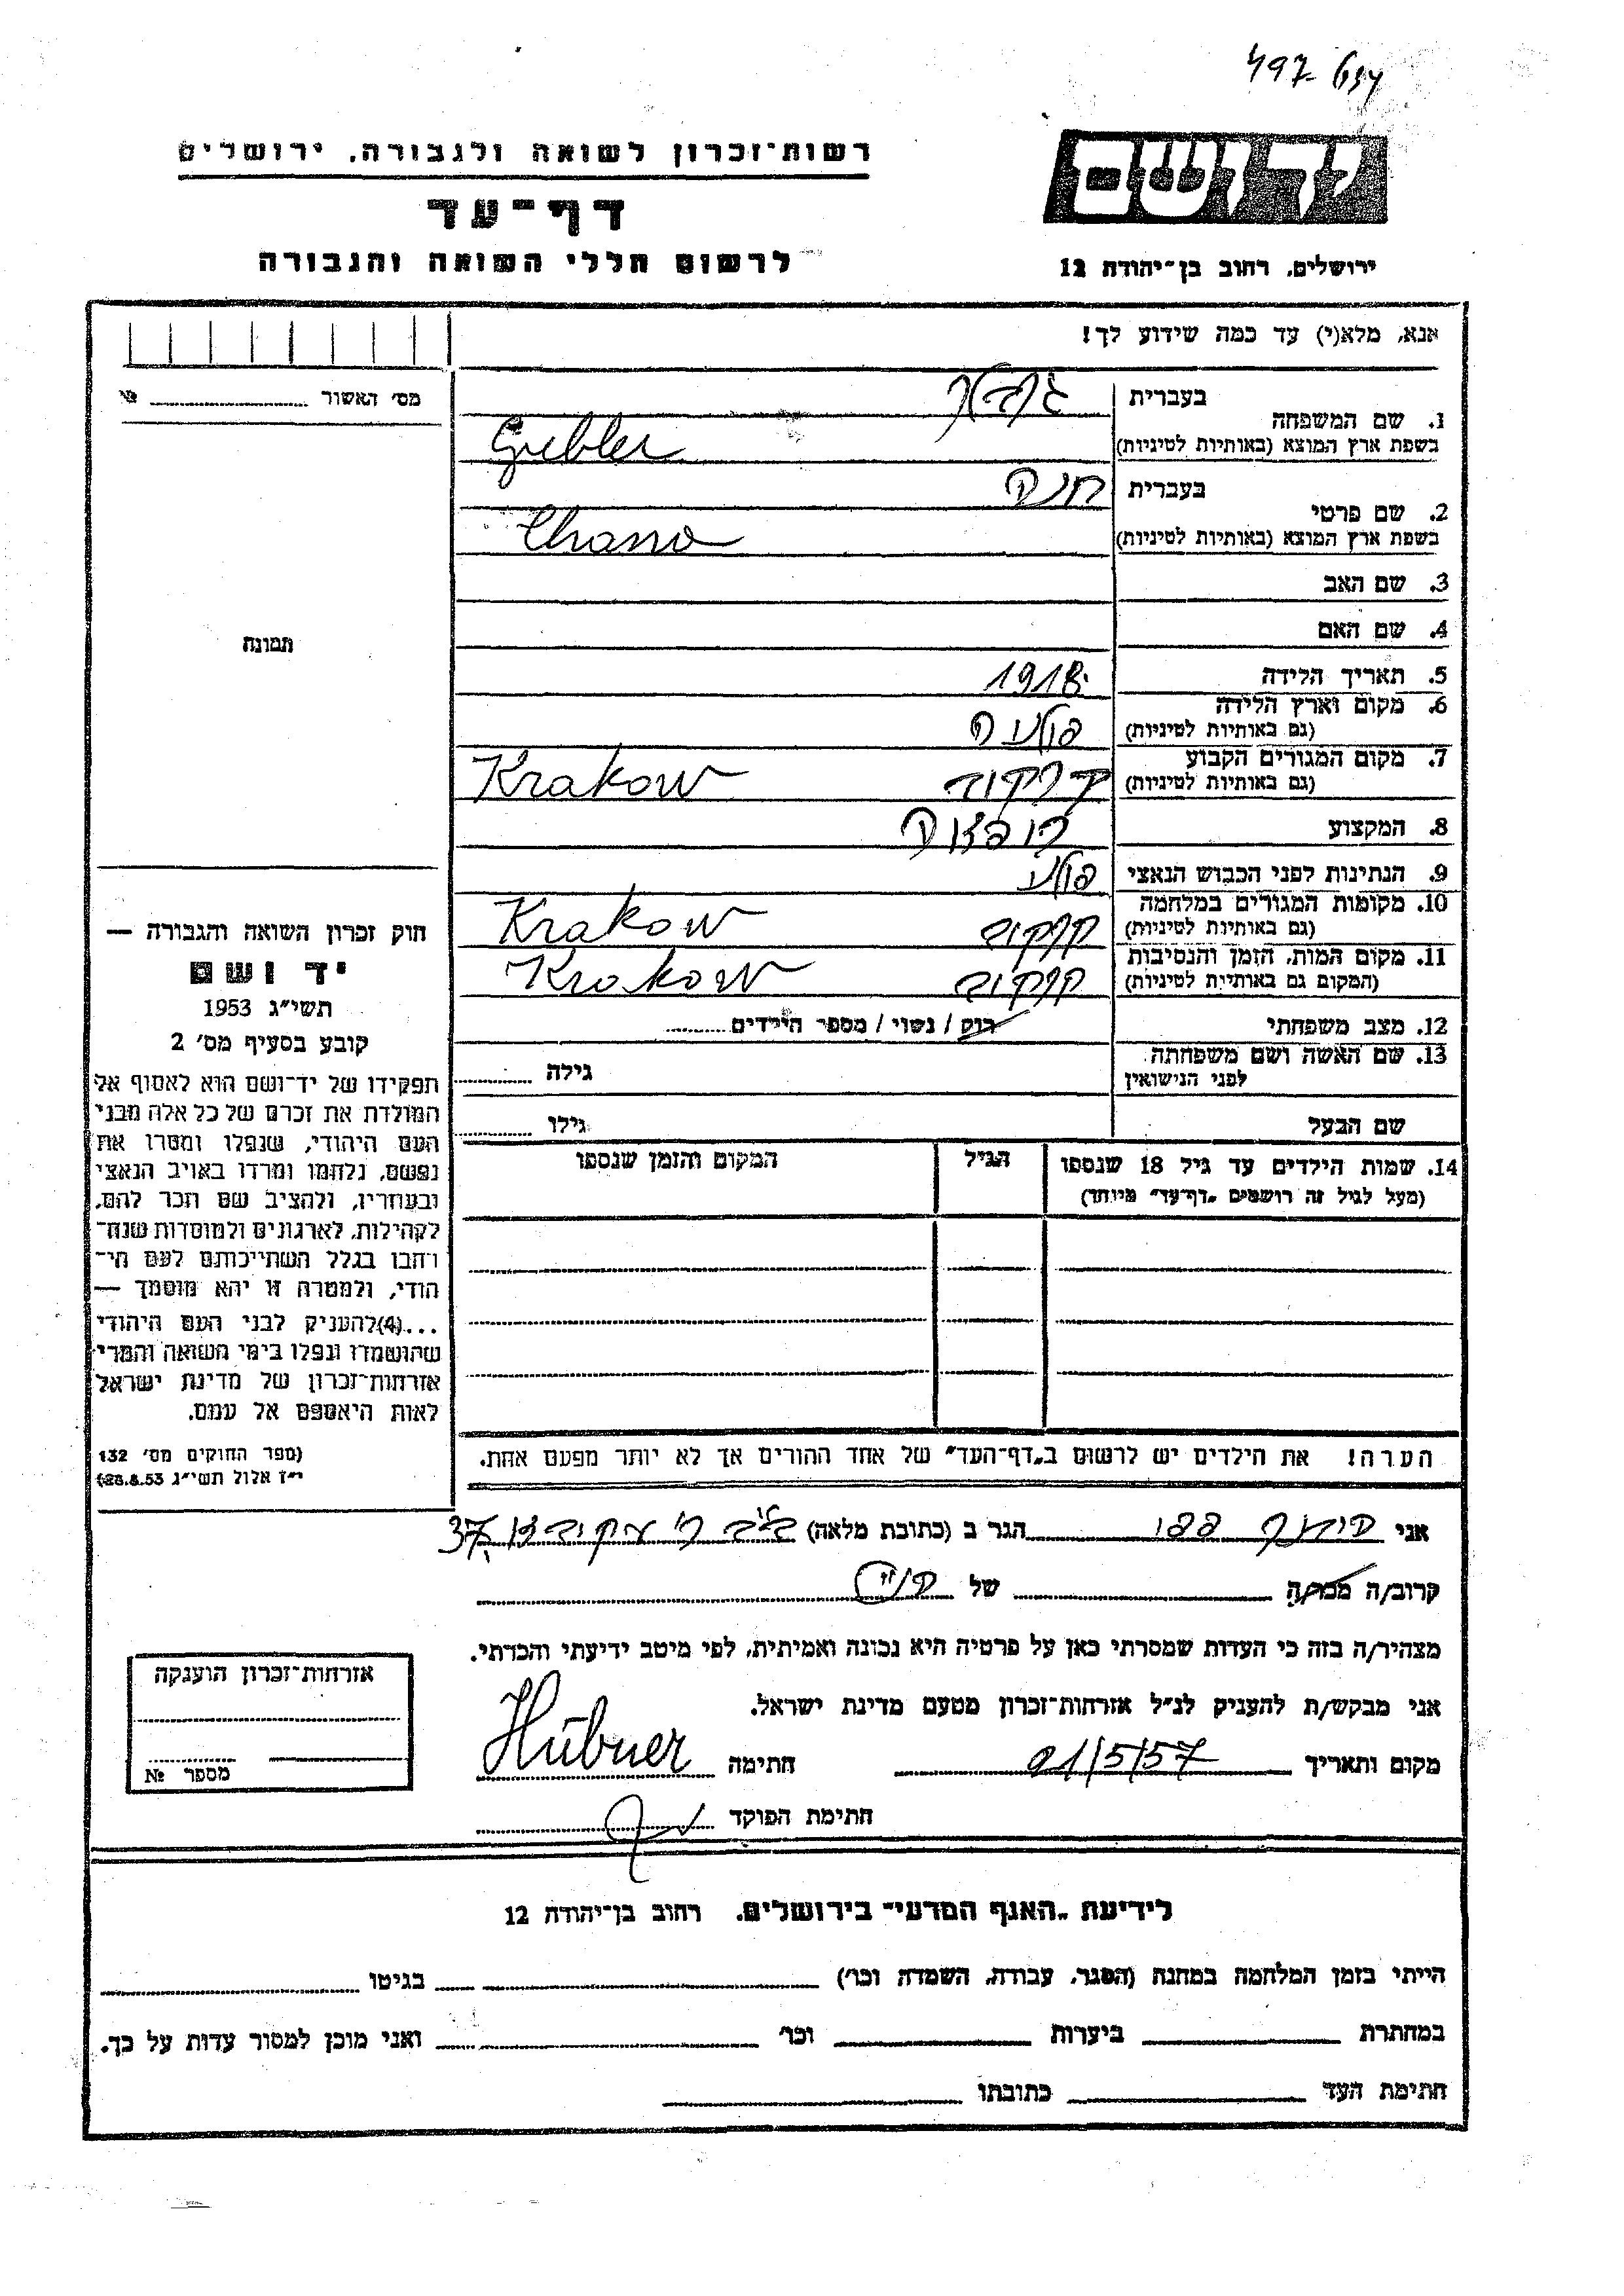 497
רשות־זכרון לשואה ולגבורה, ירושלים
יד ושם
דף־עד
לרשום חללי השואה והגבורה
ירושלים, רחוב בן־יהודה 12
אנא, מלא(י) עד כמה שידוע לך!
מס׳ האשור №
1. שם המשפחה
בעברית
בשפת ארץ המוצא (באותיות לטיניות) Grebler
2. שם פרטי
בעברית חנה
בשפת ארץ המוצא (באותיות לטיניות) Chana
3. שם האב
4. שם האם
תמונה
5. תאריך הלידה 1918
6. מקום וארץ הלידה
(גם באותיות לטיניות) פולניה
7. מקום המגורים הקבוע
(גם באותיות לטיניות) קרקוב Krakow
8. המקצוע
9. הנתינות לפני הכבוש הנאצי פולני
10. מקומות המגורים במלחמה
(גם באותיות לטיניות) קרקוב Krakow
11. מקום המות, הזמן והנסיבות
(המקום גם באותיות לטיניות) קרקוב Krakow
12. מצב משפחתי רוק / נשוי / מספר הילדים
13. שם האשה ושם משפחתה
לפני הנישואין גילה
שם הבעל גילו
14. שמות הילדים עד גיל 18 שנספו הגיל המקום והזמן שנספו
(מעל לגיל זה רושמים „דף־עד״ מיוחד)
הערה! את הילדים יש לרשום ב„דף־העד״ של אחד ההורים אך לא יותר מפעם אחת.
חוק זכרון השואה והגבורה —
יד ושם
תשי״ג 1953
קובע בסעיף מס׳ 2
תפקידו של יד־ושם הוא לאסוף אל
המולדת את זכרם של כל אלה מבני
העם היהודי, שנפלו ומסרו את
נפשם, נלחמו ומרדו באויב הנאצי
ובעוזריו, ולהציב שם וזכר להם,
לקהילות, לארגונים ולמוסדות שנח־
רבו בגלל השתייכותם לעם הי־
הודי, ולמטרה זו יהא מוסמך —
...(4)להעניק לבני העם היהודי
שהושמדו ונפלו בימי השואה והמרי
אזרחות־זכרון של מדינת ישראל
לאות היאספם אל עמם.
(ספר החוקים מס׳ 132
י״ז אלול תשי״ג 28.8.53)
אני הגר ב (כתובת מלאה) 37
קרוב/ה מכר/ה של
מצהיר/ה בזה כי העדות שמסרתי כאן על פרטיה היא נכונה ואמיתית, לפי מיטב ידיעתי והכרתי.
אני מבקש/ת להעניק לנ״ל אזרחות־זכרון מטעם מדינת ישראל.
מקום ותאריך 21/5/57 חתימה Hübner
חתימת הפוקד
אזרחות־זכרון הוענקה
מספר №
לידיעת „האגף המדעי״ בירושלים, רחוב בן־יהודה 12
הייתי בזמן המלחמה במחנה (הסגר, עבודה, השמדה וכו׳) בגיטו
במחתרת ביערות וכו׳ ואני מוכן למסור עדות על כך.
חתימת העד כתובתו